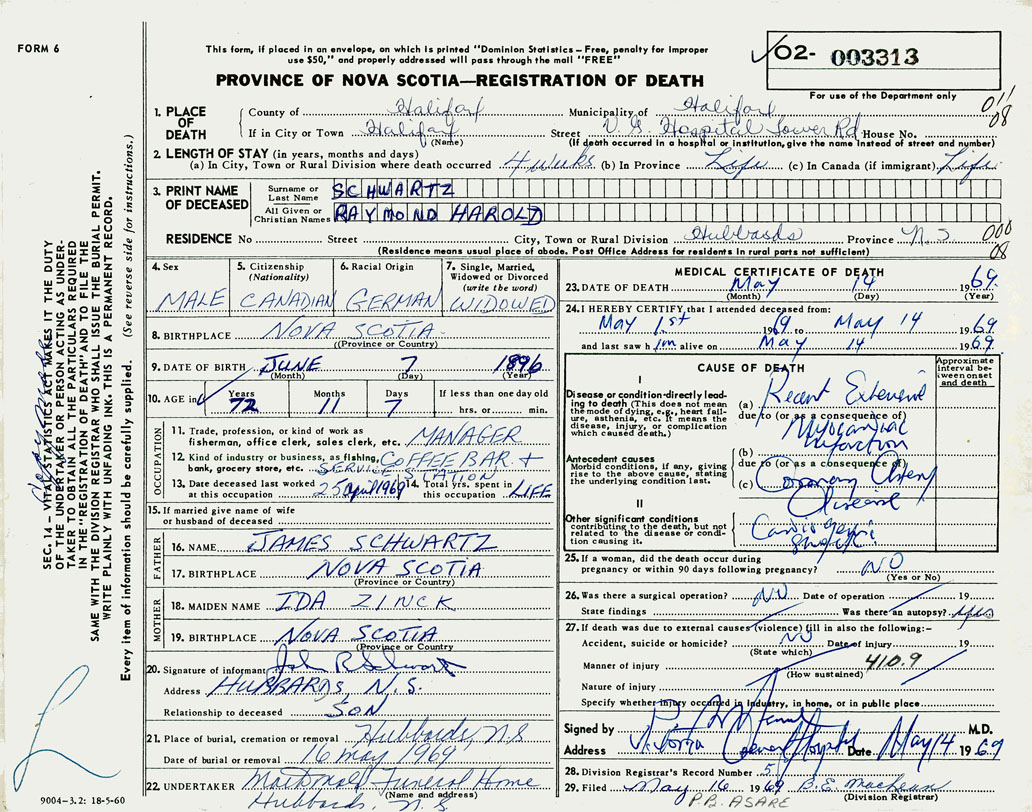 FORM 6
This form, if placed in an envelope, on which is printed "Dominion Statistics – Free, penalty for improper
use $50," and properly addressed will pass through the mail "FREE"
PROVINCE OF NOVA SCOTIA—REGISTRATION OF DEATH
02- 003313
For use of the Department only
011
08
1. PLACE OF DEATH
County of Halifax Municipality of Halifax
If in City or Town Halifax Street V. G. Hospital Tower Rd House No.
(Name) (If death occurred in a hospital or institution, give the name instead of street and number)
2. LENGTH OF STAY (in years, months and days)
(a) In City, Town or Rural Division where death occurred 4 wks (b) In Province Life (c) In Canada (if immigrant) Life
3. PRINT NAME OF DECEASED
Surname or Last Name SCHWARTZ
All Given or Christian Names RAYMOND HAROLD
RESIDENCE No Street City, Town or Rural Division Hubbards Province N.S.
000
08
(Residence means usual place of abode. Post Office Address for residents in rural parts not sufficient)
4. Sex
MALE
5. Citizenship (Nationality)
CANADIAN
6. Racial Origin
GERMAN
7. Single, Married, Widowed or Divorced (write the word)
WIDOWED
8. BIRTHPLACE NOVA SCOTIA
(Province or Country)
9. DATE OF BIRTH JUNE 7 1896
(Month) (Day) (Year)
10. AGE in Years 72 Months 11 Days 7 If less than one day old hrs. or min.
OCCUPATION
11. Trade, profession, or kind of work as
fisherman, office clerk, sales clerk, etc. MANAGER
12. Kind of industry or business, as fishing, COFFEE BAR +
bank, grocery store, etc. SERVICE STATION
13. Date deceased last worked at this occupation 25 April 1969 14. Total yrs. spent in this occupation LIFE
15. If married give name of wife
or husband of deceased
FATHER
16. NAME JAMES SCHWARTZ
17. BIRTHPLACE NOVA SCOTIA
(Province or Country)
MOTHER
18. MAIDEN NAME IDA ZINCK
19. BIRTHPLACE NOVA SCOTIA
(Province or Country
20. Signature of informant John R Schwartz
Address HUBBARDS, N.S.
Relationship to deceased SON
21. Place of burial, cremation or removal Hubbards, N.S
Date of burial or removal 16 May 1969
22. UNDERTAKER Funeral Home
(Name and address)
Hubbards, N.S
9004–3.2: 18-5-60
MEDICAL CERTIFICATE OF DEATH
23. DATE OF DEATH May 14 1969.
(Month) (Day) (Year)
24. I HEREBY CERTIFY that I attended deceased from:
May 1st 1969 to May 14 1969
and last saw him alive on May 14 1969.
CAUSE OF DEATH
Approximate interval between onset and death
I
Disease or condition directly leading to death (This does not mean the mode of dying, e.g., heart failure, asthenia, etc. It means the disease, injury, or complication which caused death.)
(a) Recent Extensive
due to (or as a consequence of)
Myocardial infarction
Antecedent causes
Morbid conditions, if any, giving rise to the above cause, stating the underlying condition last.
(b)
due to (or as a consequence of)
(c) Coronary Artery
Disease
II
Other significant conditions
contributing to the death, but not related to the disease or condition causing it.
Cardiogenic
Shock
25. If a woman, did the death occur during
pregnancy or within 90 days following pregnancy? NO
(Yes or No)
26. Was there a surgical operation? NO Date of operation 19
State findings Was there an autopsy? yes
27. If death was due to external causes (violence) fill in also the following:–
Accident, suicide or homicide? NO Date of injury 19
(State which)
Manner of injury 410.9
(How sustained)
Nature of injury
Specify whether injury occurred in industry, in home, or in public place
Signed by M.D.
Address Victoria General Hospital Date May 14 1969
28. Division Registrar's Record Number 5
29. Filed May 16 1969 B.E. MacLean
(Division Registrar)
P.B. ASARE
SEC. 14 – VITAL STATISTICS ACT MAKES IT THE DUTY
OF THE UNDERTAKER OR PERSON ACTING AS UNDER-
TAKER TO OBTAIN ALL THE PARTICULARS REQUIRED
IN THE "REGISTRATION OF DEATH" AND TO FILE THE
SAME WITH THE DIVISION REGISTRAR WHO SHALL ISSUE THE BURIAL PERMIT.
WRITE PLAINLY WITH UNFADING INK. THIS IS A PERMANENT RECORD.
Every item of information should be carefully supplied. (See reverse side for instructions.)